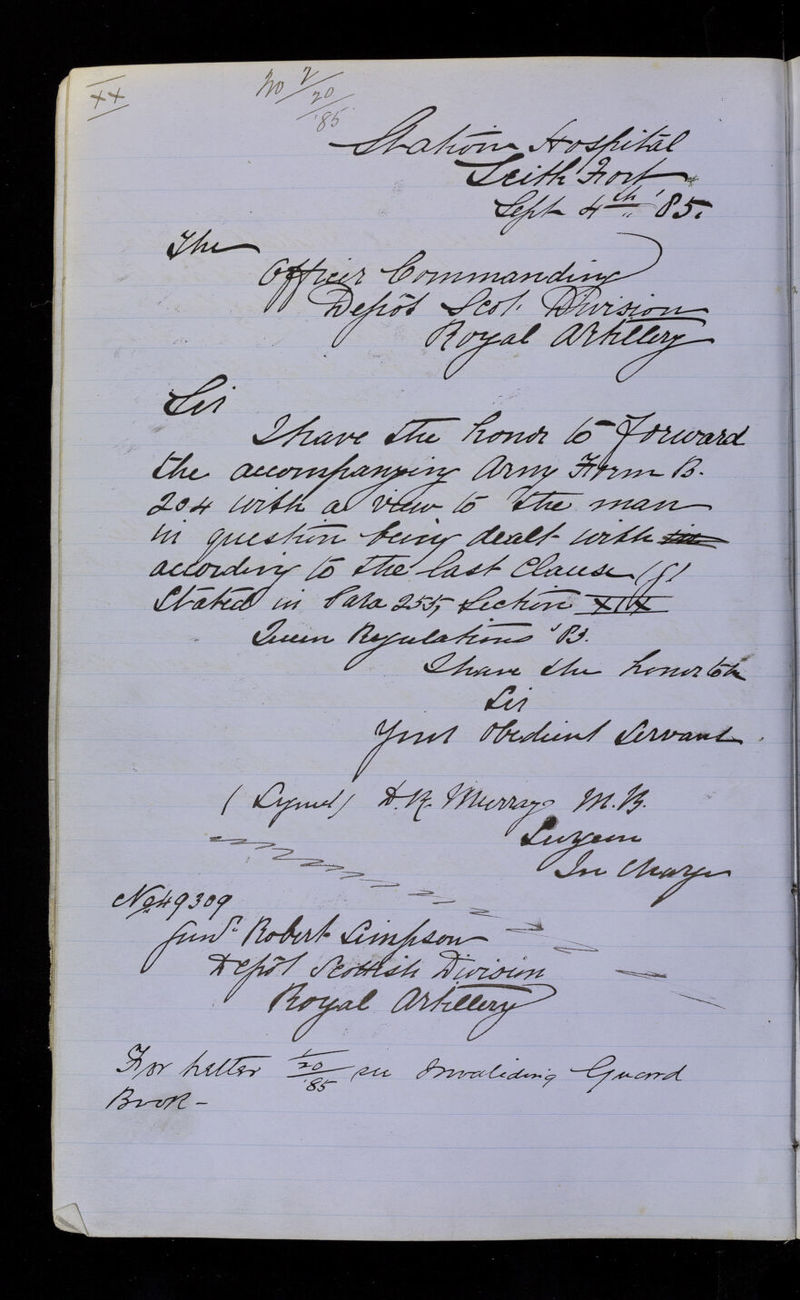 XX
No 2/20/85
Station Hospital
Leith Fort
Sept 4th '85.
The
Officer Commanding
Depôt Scot. Division
Royal Artillery
Sir
I have the honor to forward
the accompanying Army Form B.
204 with a view to the man
in question being dealt with
according to the last Clause (g)
Stated in Para 255, Section XIX
Queen Regulations '83.
I have the honor to be
Sir
Your Obedient Servant
(Signed) D.R. Murray M.B.
Surgeon
In Charge
No 49309
Gunr. Robert Simpson
Depôt Scottish Division
Royal Artillery
For Letter 1/20/85 see Invaliding Guard
Book -